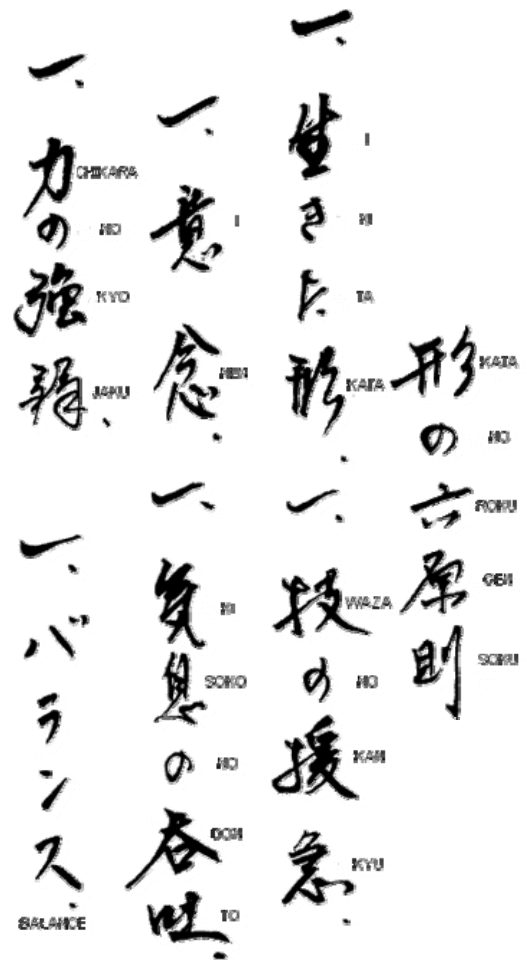 形の六原則
KATA NO ROKU GEN SOKU
一、生きた形.
I KI TA KATA
一、技の援急.
WAZA NO KAN KYU
一、意念.
I NEN
一、気息の呑吐.
KI SOKO NO DON TO
一、力の強弱.
CHIKARA NO KYO JAKU
一、バランス.
BALANCE